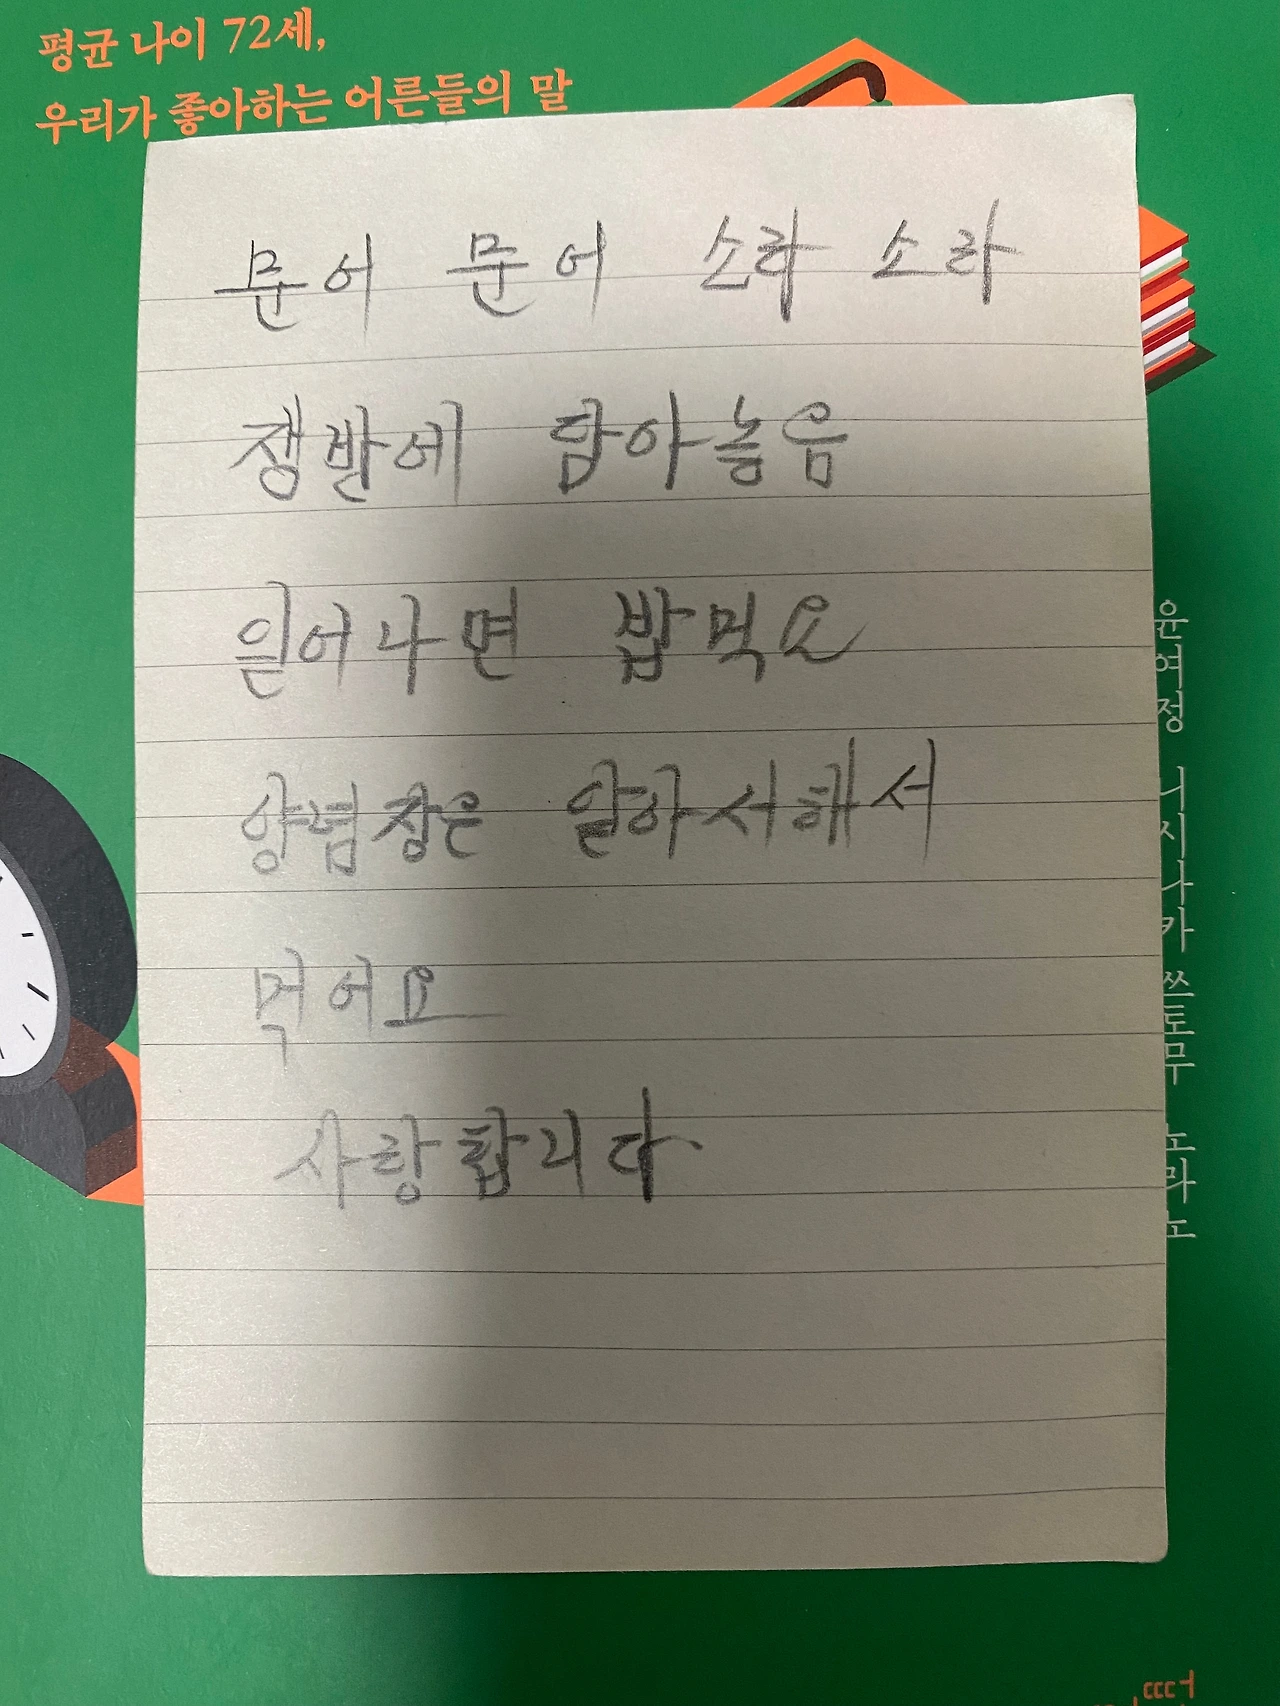 평균 나이 72세,
우리가 좋아하는 어른들의 말
문어 문어 소라 소라
쟁반에 담아놓음
일어나면 밥먹요
양념장은 알아서해서
먹어요
사랑합니다
윤여정 니시나카 쓰토무 노라노